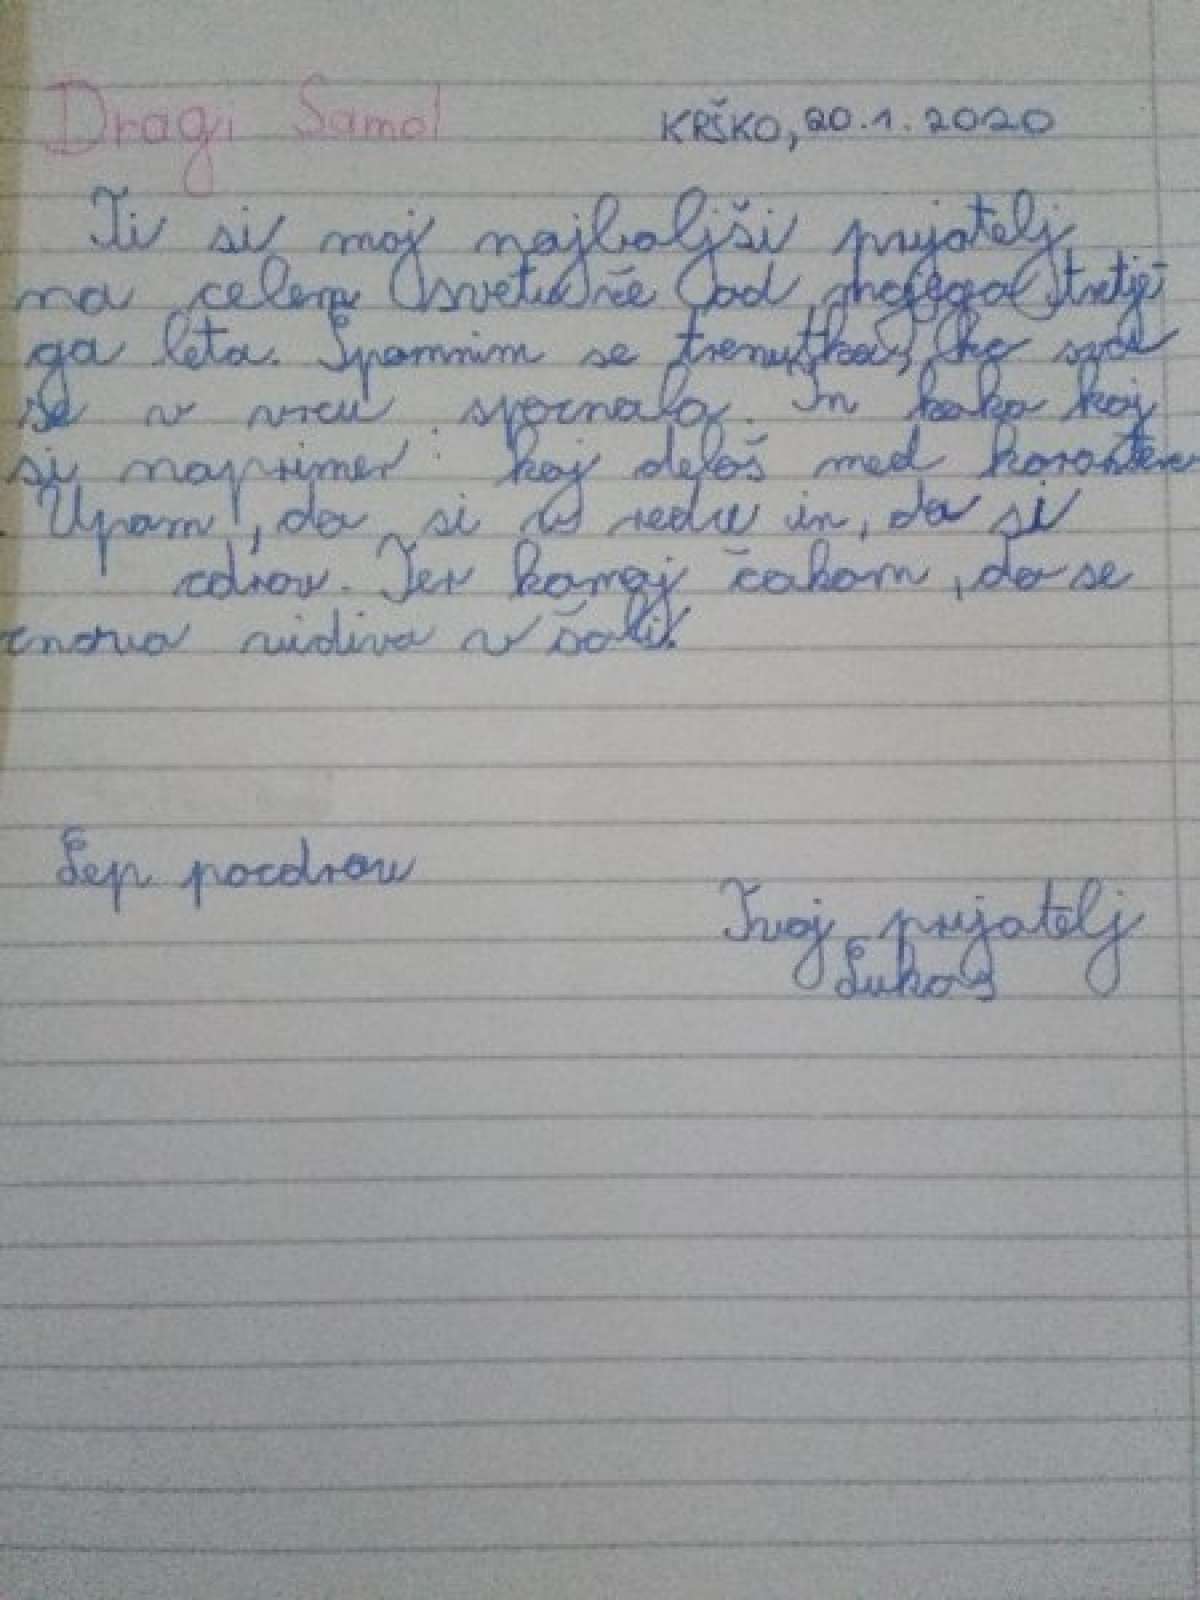 Dragi Samo! KRŠKO, 20.1.2020
Ti si moj najboljši prijatelj
na celem svetu že od mojega tretje
ga leta. Spomnim se trenutka, ko sva
se v vrcu spoznala. In kako kaj
si naprimer: kaj delaš med karanteno
Upam, da si v redu in, da si
zdrav. Ter komaj čakam, da se
znova vidiva v šoli.
Lep pozdrav
Tvoj prijatelj
Lukas